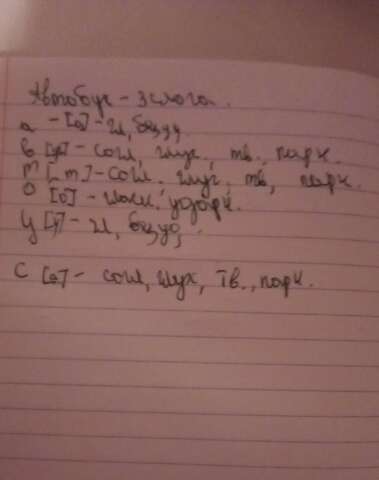 Автобус - 3 слога.
а - [а] - гл, безуд,
в [ф] - согл, глух, тв., парн.
т [т] - согл, глух, тв, парн.
о [о] - гласн, ударн.
у [у] - гл, безуд,
с [с] - согл, глух, тв., парн.